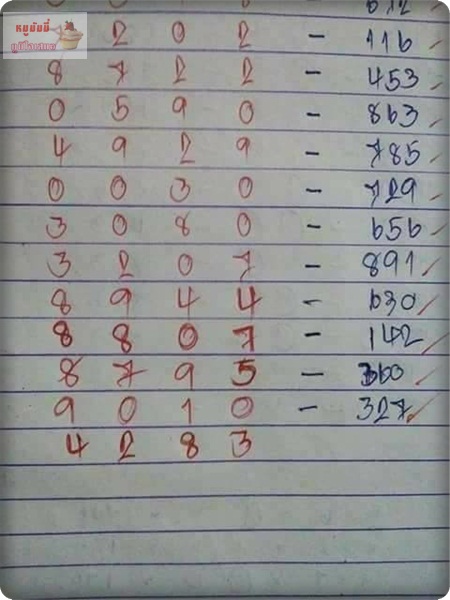 หมูบินบี่
2 0 2 - 116
8 7 2 2 - 453
0 5 9 0 - 863
4 9 2 9 - 785
0 0 3 0 - 729
3 0 8 0 - 656
3 2 0 7 - 891
8 9 4 4 - 630
8 8 0 7 - 142
8 7 9 5 - 360
9 0 1 0 - 327
4 2 8 3